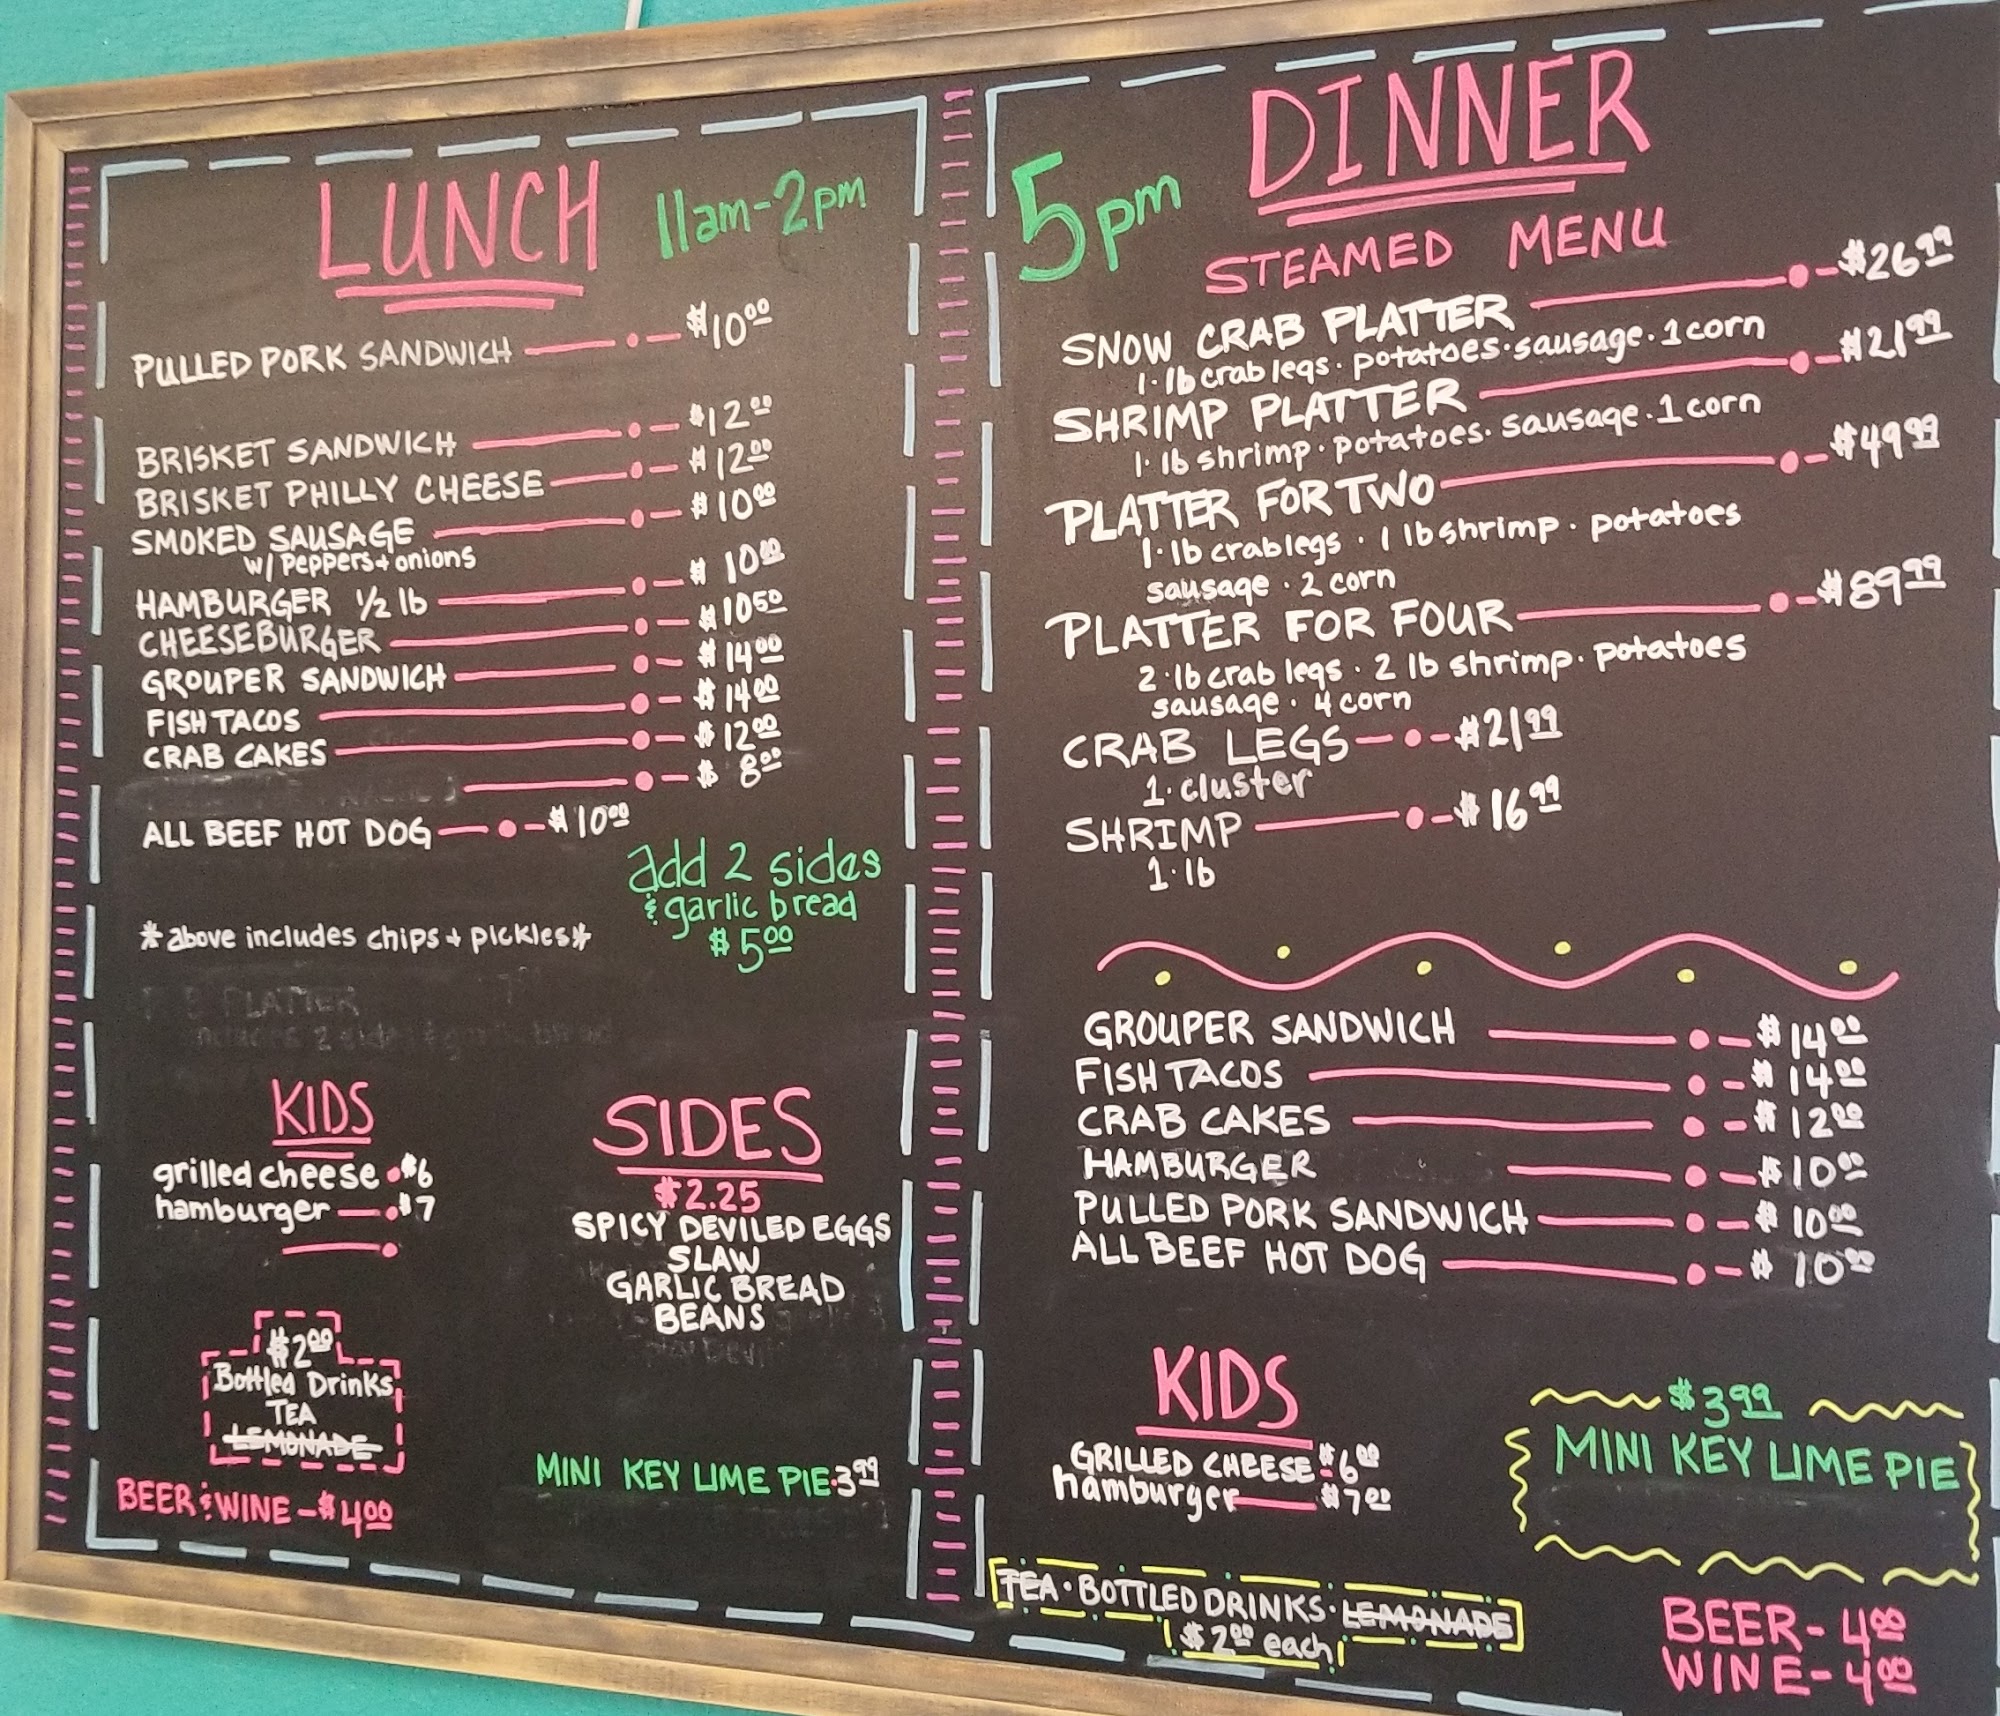 LUNCH 11am-2pm
PULLED PORK SANDWICH $10.00
BRISKET SANDWICH $12.00
BRISKET PHILLY CHEESE $12.00
SMOKED SAUSAGE $10.00
w/ Peppers + onions
HAMBURGER 1/2 lb $10.00
CHEESEBURGER $10.50
GROUPER SANDWICH $14.00
FISH TACOS $14.00
CRAB CAKES $12.00
$8.00
ALL BEEF HOT DOG $10.00
add 2 sides
& garlic bread
$5.00
*above includes chips + pickles*
PLATTER
includes 2 sides & garlic bread
KIDS
grilled cheese $6
hamburger $7
SIDES
$2.25
SPICY DEVILED EGGS
SLAW
GARLIC BREAD
BEANS
$2.00
Bottled Drinks
TEA
LEMONADE
BEER & WINE - $4.00
MINI KEY LIME PIE 3.99
DINNER
5pm
STEAMED MENU
SNOW CRAB PLATTER $26.99
1·lb crab legs · potatoes · sausage · 1 corn
SHRIMP PLATTER $21.99
1·lb shrimp · potatoes · sausage · 1 corn
PLATTER FOR TWO $49.99
1·lb crab legs · 1 lb shrimp · potatoes
sausage · 2 corn
PLATTER FOR FOUR $89.99
2·lb crab legs · 2 lb shrimp · potatoes
sausage · 4 corn
CRAB LEGS $21.99
1·cluster
SHRIMP $16.99
1·lb
GROUPER SANDWICH $14.00
FISH TACOS $14.00
CRAB CAKES $12.00
HAMBURGER $10.00
PULLED PORK SANDWICH $10.00
ALL BEEF HOT DOG $10.00
KIDS
GRILLED CHEESE $6.00
hamburger $7.00
$3.99
MINI KEY LIME PIE
TEA · BOTTLED DRINKS · LEMONADE
$2.00 each
BEER - 4.00
WINE - 4.00